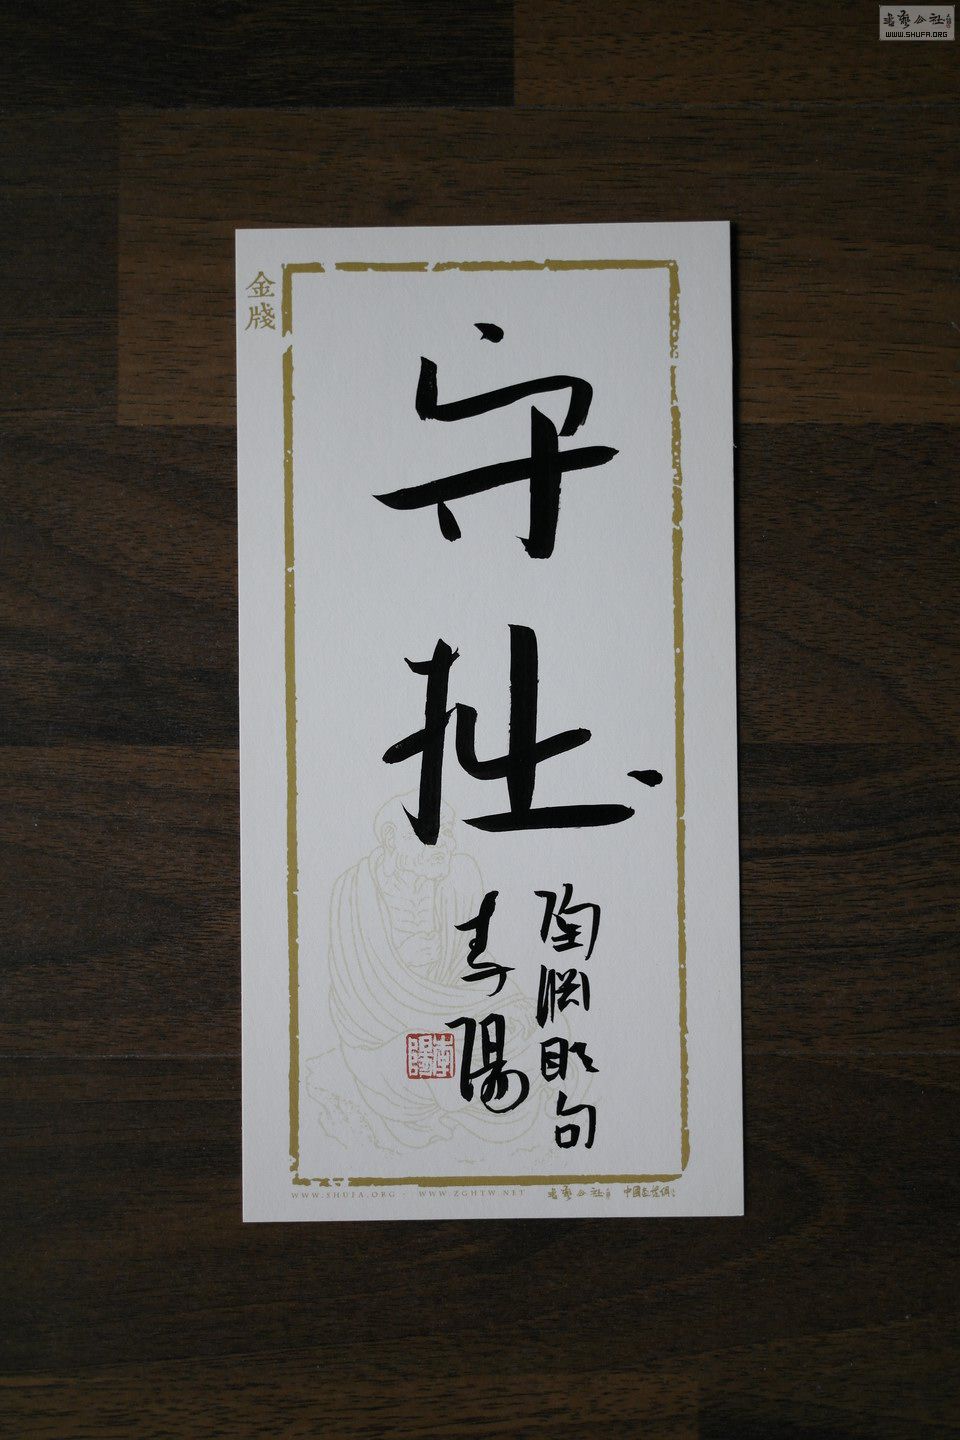 書藝公社
WWW.SHUFA.ORG
金牋
守拙
陶渊明句
李陽
李陽
WWW.SHUFA.ORG · WWW.ZGHTW.NET
書藝公社